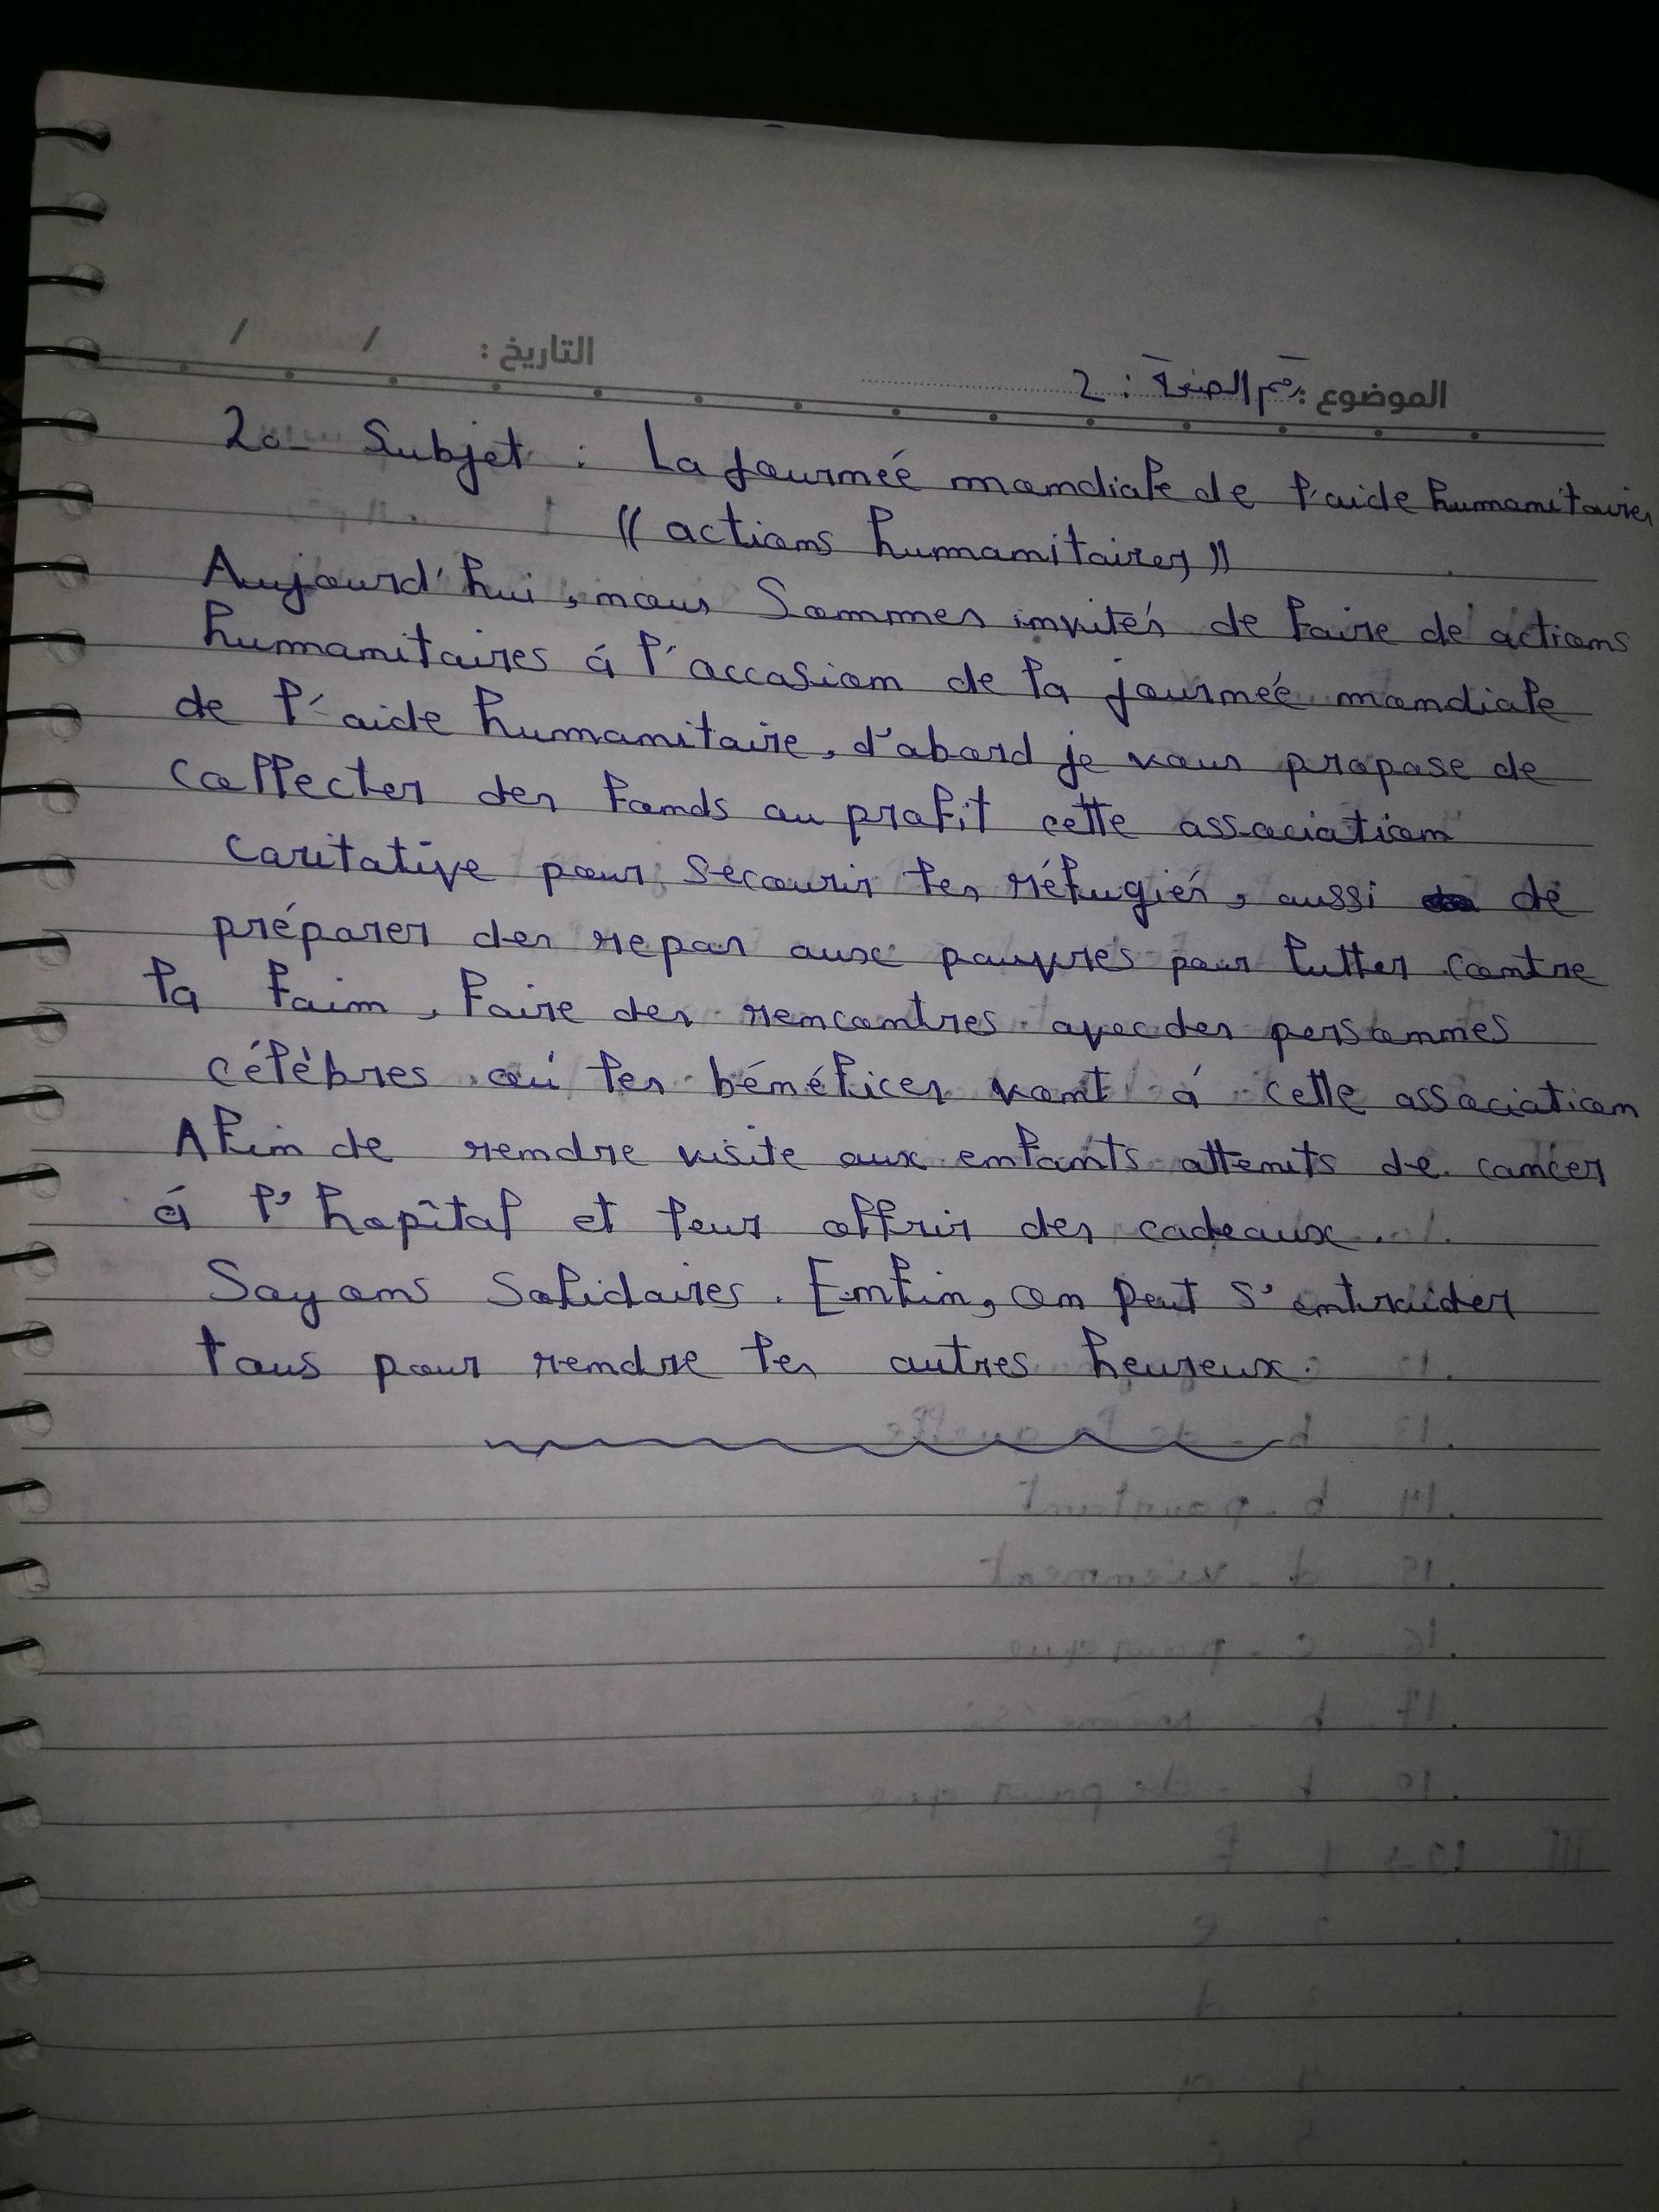 التاريخ : / /
الموضوع : رقم الصفحة : 2
20- Subjet : La journeé mondiale de l'aide humanitaires
(( actions humanitaires ))
Aujourd'hui, nous Sommes invités de faire de actions
humanitaires á l'occasion de la journeé mondiale
de l'aide humanitaire, d'abord je vous propose de
collecter des fonds au profit cette association
caritative pour secourir les réfugiés, aussi de
préparer des repas aux pauvres pour lutter contre
la faim, faire des rencontres avec des personnes
célèbres oú les bénéfices vont á cette association
Afin de rendre visite aux enfants attenits de cancer
á l'hopîtal et leur offrir des cadeaux.
Soyons Solidaires. Enfin, on peut s'entraider
tous pour rendre les autres heureux.